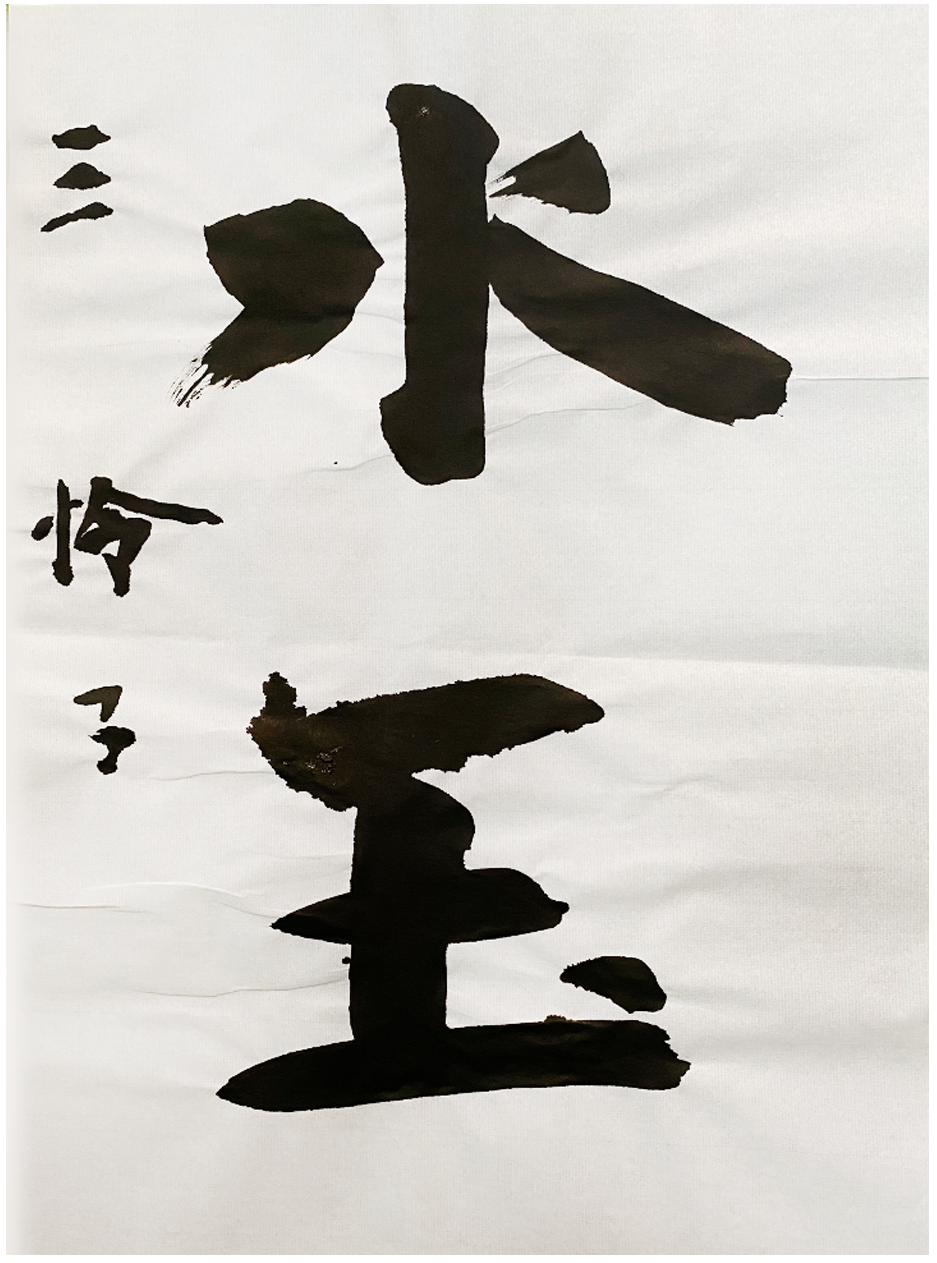 水玉
三 怜